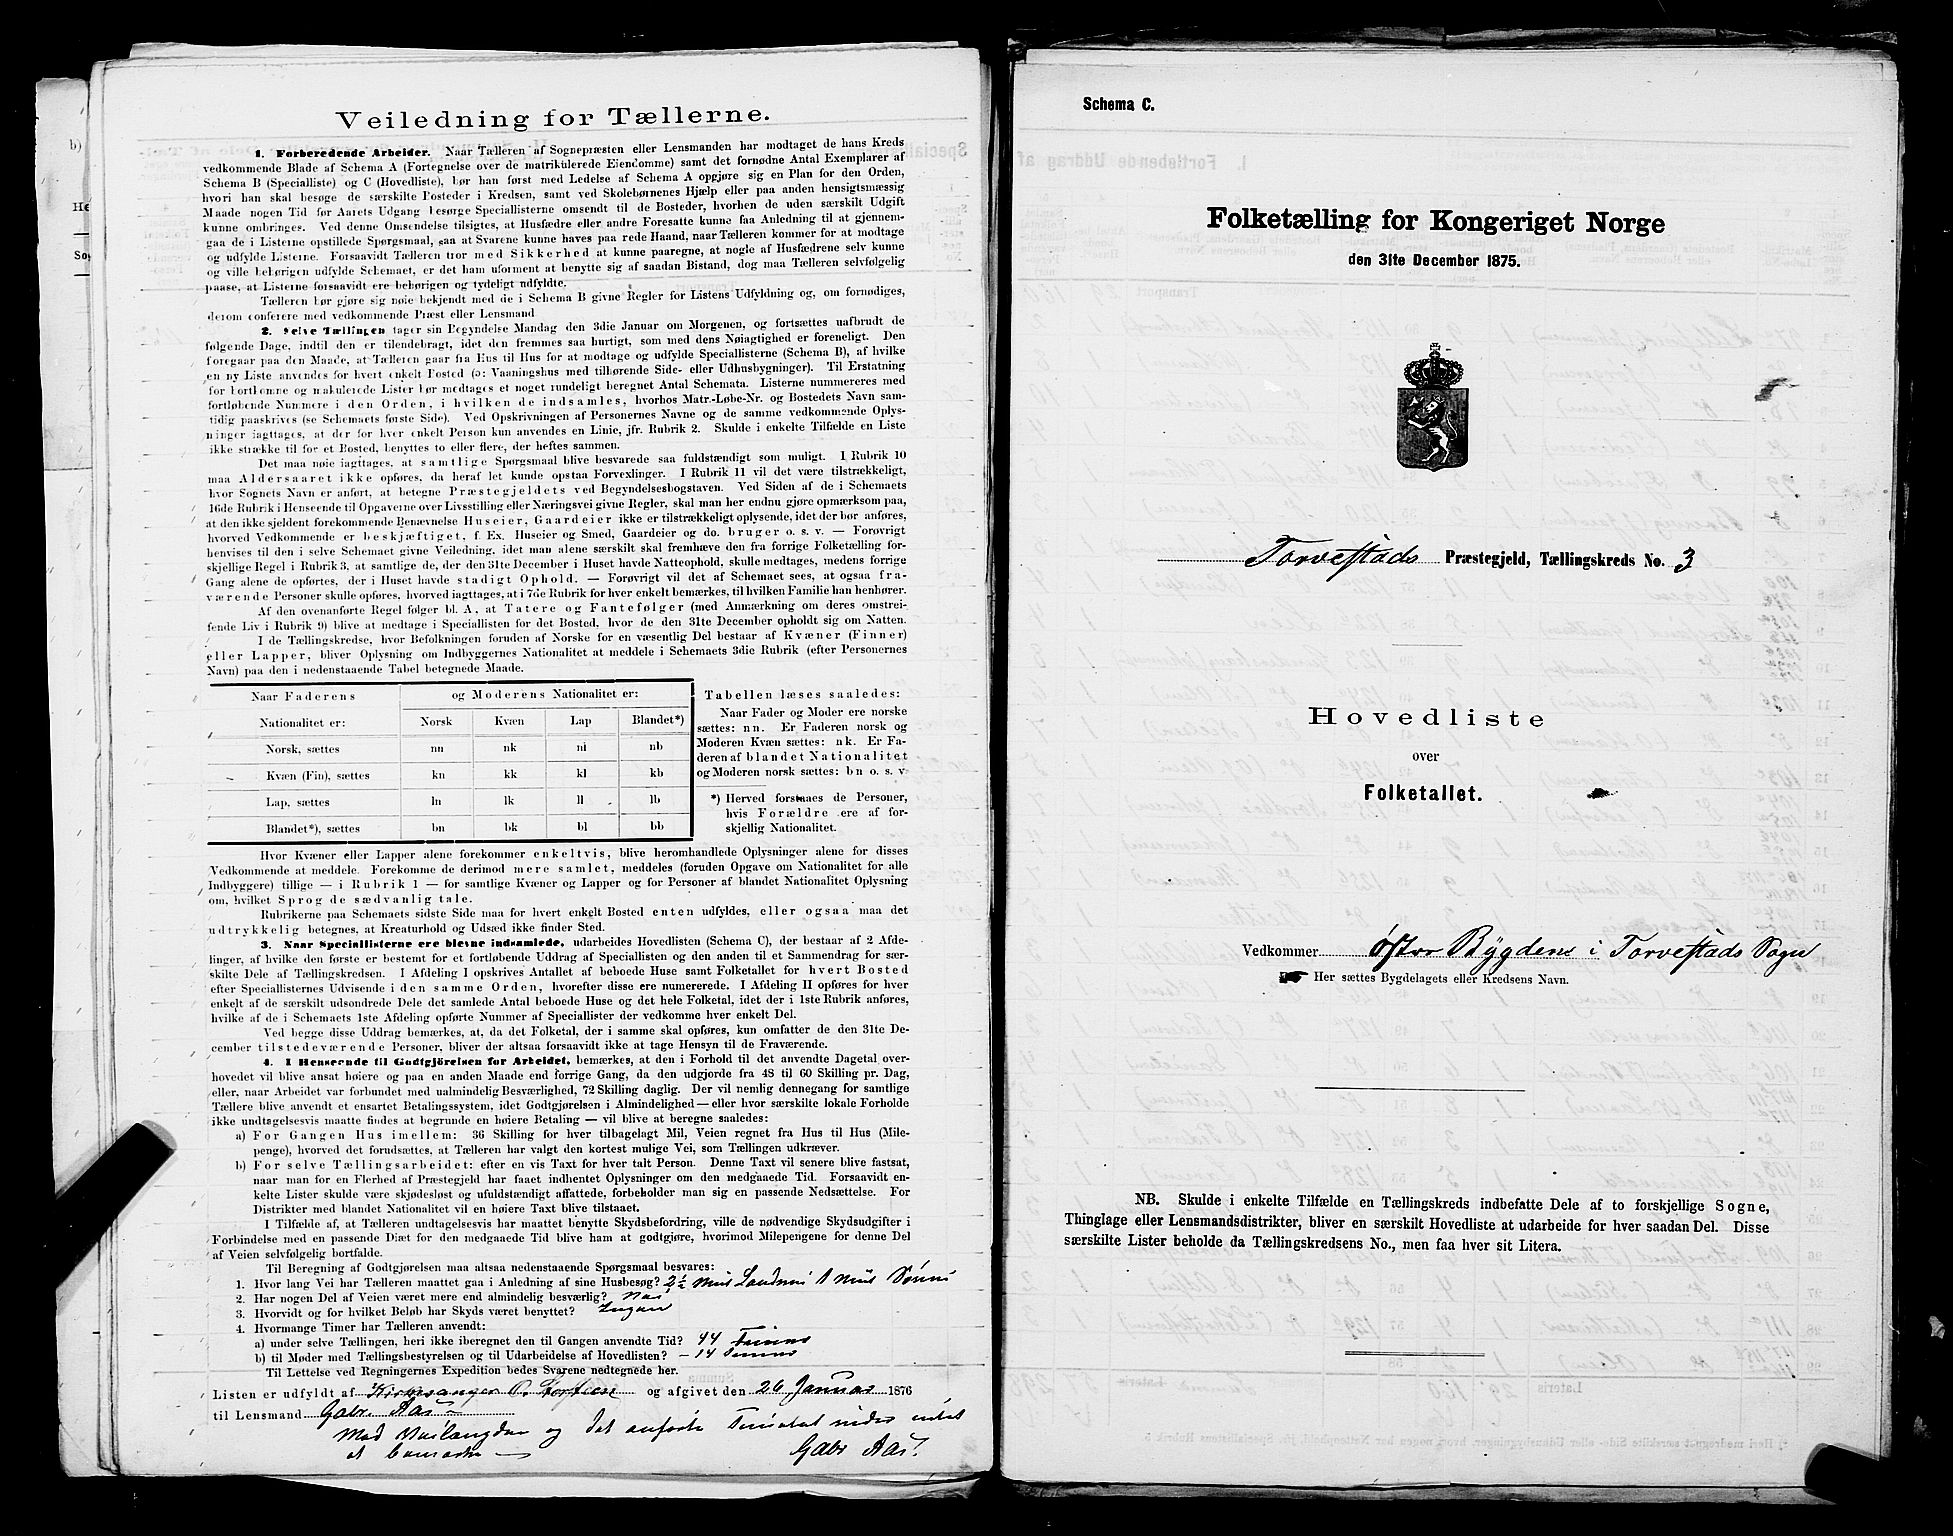 Veiledning for Tællerne.
1. Forberedende Arbeider. Naar Tælleren af Sognepræsten eller Lensmanden har modtaget de hans Kreds
vedkommende Blade af Schema A (Fortegnelse over de matrikulerede Eiendomme) samt det fornødne Antal Exemplarer af
Schema B (Specialliste) og C (Hovedliste), bør han først med Ledelse af Schema A opgjøre sig en Plan for den Orden,
hvori han skal besøge de særskilte Bosteder i Kredsen, samt ved Skolebørnenes Hjælp eller paa anden hensigtsmæssig
Maade nogen Tid før Aarets Udgang besørge Speciallisterne omsendt til de Bosteder, hvorhen de uden særskilt Udgift
kunne ombringes. Ved denne Omsendelse tilsigtes, at Husfædre eller andre Foresatte kunne faa Anledning til at gjennem-
gaa de i Listerne opstillede Spørgsmaal, saa at Svarene kunne haves paa rede Haand, naar Tælleren kommer for at modtage
og udfylde Listerne. Forsaavidt Tælleren tror med Sikkerhed at kunne paaregne, at nogle af Husfædrene selv kunne
og ville behørigen udfylde Schemaet, er det ham uforment at benytte sig af saadan Bistand, dog maa Tælleren selvfølgelig
paase, at Listerne forsaavidt ere behørigen og tydeligt udfyldte.
Tælleren bør gjøre sig nøie bekjendt med de i Schema B givne Regler for Listens Udfyldning og, om fornødiges,
derom conferere med vedkommende Præst eller Lensmand
2. Selve Tællingen tager sin Begyndelse Mandag den 3die Januar om Morgenen, og fortsættes uafbrudt de
følgende Dage, indtil den er tilendebragt, idet den fremmes saa hurtigt, som med dens Nøiagtighed er foreneligt. Den
foregaar paa den Maade, at Tælleren gaar fra Hus til Hus for at modtage og udfylde Speciallisterne (Schema B), af hvilke
en ny Liste anvendes for hvert enkelt Bosted (ɔ: Vaaningshus med tilhørende Side- eller Udhusbygninger). Til Erstatning
for bortkomne og makulerede Lister bør medtages et noget rundeligt beregnet Antal Schemata. Listerne nummereres med
fortløbende Nummere i den Orden, i hvilken de indsamles, hvorhos Matr.-Løbe-Nr. og Bostedets Navn sam-
tidig paaskrives (se Schemaets første Side). Ved Opskrivningen af Personernes Navne og de samme vedkommende Oplys-
ninger iagttages, at der for hver enkelt Person kun anvendes en Linie, jfr. Rubrik 2. Skulde i enkelte Tilfælde en Liste
ikke strække til for et Bosted, benyttes to eller flere, der heftes sammen.
Det maa nøie iagttages, at samtlige Spørgsmaal blive besvarede saa fuldstændigt som muligt. I Rubrik 10
maa Aldersaaret ikke opføres, da heraf let kunde opstaa Forvexlinger. I Rubrik 11 vil det være tilstrækkeligt,
hvor Sognets Navn er anført, at betegne Præstegjeldets ved Begyndelsesbogstaven. Ved Siden af de i Schemaets
16de Rubrik i Henseende til Opgaverne over Livsstilling eller Næringsvei givne Regler, skal man her endnu gjøre opmærksom paa,
at den ikke sjeldent forekommende Benævnelse Huseier, Gaardeier ikke er tilstrækkeligt oplysende, idet der bør anføres,
hvorved Vedkommende er beskjæftiget, f. Ex. Huseier og Smed, Gaardeier og do. bruger o. s. v. — Forøvrigt
henvises til den i selve Schemaet givne Veiledning, idet man alene særskilt skal fremhæve den fra forrige Folketælling for-
skjellige Regel i Rubrik 3, at samtlige de, der den 31te December i Huset havde Natteophold, skulle medtages, medens forrige
Gang alene de opførtes, der i Huset havde stadigt Ophold. — Forøvrigt vil det af Schemaet sees, at ogsaa fra-
værende Personer skulle opføres, hvorved iagttages, at i 7de Rubrik for hver enkelt bemærkes, til hvilken Familie han henhører.
Af den ovenanførte Regel følger bl. A, at Tatere og Fantefølger (med Anmærkning om deres omstrei-
fende Liv i Rubrik 9) blive at medtage i Speciallisten for det Bosted, hvor de den 31te December opholdt sig om Natten.
I de Tællingskredse, hvor Befolkningen foruden af Norske for en væsentlig Del bestaar af Kvæner (Finner)
eller Lapper, bliver Oplysning om Indbyggernes Nationalitet at meddele i Schemaets 3die Rubrik (efter Personernes
Navn) paa den i nedenstaaende Tabel betegnede Maade.
Naar Faderens og Moderens Nationalitet er:
Nationalitet er: Norsk Kvæn Lap Blandet*)
Norsk, sættes nn nk nl nb
Kvæn (Fin), sættes kn kk kl kb
Lap, sættes ln lk ll lb
Blandet*), sættes bn bk bl bb
Tabellen læses saaledes:
Naar Fader og Moder ere norske
sættes: nn. Er Faderen norsk og
Moderen Kvæn sættes: nk. Er Fa-
deren af blandet Nationalitet
og Moderen norsk sættes: bn o. s. v.
*) Herved forstaaes de Personer,
hvis Forældre ere af for-
skjellig Nationalitet.
Hvor Kvæner eller Lapper alene forekommer enkeltvis, blive heromhandlede Oplysninger alene for disses
Vedkommende at meddele. Forekomme de derimod mere samlet, meddeles (foruden Opgave om Nationalitet for alle
Indbyggere) tillige — i Rubrik 1 — for samtlige Kvæner og Lapper og for Personer af blandet Nationalitet Oplysning
om, hvilket Sprog de sædvanlig tale.
Rubrikerne paa Schemaets sidste Side maa for hvert enkelt Bosted enten udfyldes, eller ogsaa maa det
udtrykkelig betegnes, at Kreaturhold og Udsæd ikke finder Sted.
3. Naar Speciallisterne ere blevne indsamlede, udarbeides Hovedlisten (Schema C), der bestaar af 2 Afde-
linger, af hvilke den første er bestemt for et fortløbende Uddrag af Speciallisten og den anden til et Sammendrag for sær-
skilte Dele af Tællingskredsen. I Afdeling I opskrives Antallet af beboede Huse samt Folketallet for hvert Bosted
efter Speciallisternes Udvisende i den samme Orden, hvorefter disse ere numererede. I Afdeling II opføres for hver
enkelt af de særskilt udsondrede Dele det samlede Antal beboede Huse og det hele Folketal, idet der i 1ste Rubrik anføres,
hvilke af de i Schemaets 1ste Afdeling opførte Nummer af Speciallister der vedkomme hver enkelt Del.
Ved begge disse Uddrag bemærkes, at, da det Folketal, der i samme skal opføres, kun omfatter de den 31te De-
cember tilstedeværende Personer, bliver der altsaa forsaavidt ikke at tage Hensyn til de Fraværende.
4. I Henseende til Godtgjörelsen for Arbeidet, bemærkes, at den i Forhold til det anvendte Dagetal over-
hovedet vil blive ansat høiere og paa en anden Maade end forrige Gang, da den udgjorde fra 48 til 60 Skilling pr. Dag,
eller, naar Arbeidet var forbundet med ualmindelig Besværlighed, 72 Skilling daglig. Der vil nemlig dennegang for samtlige
Tællere blive anvendt et ensartet Betalingssystem, idet Godtgjørelsen i Almindelighed — eller hvor særskilte lokale Forholde
ikke undtagelsesvis maatte findes at begrunde en høiere Betaling — vil blive at beregne saaledes:
a) For Gangen Hus imellem: 36 Skilling for hver tilbagelagt Mil, Veien regnet fra Hus til Hus (Mile-
penge), hvorved det forudsættes, at Tælleren har valgt den kortest mulige Vei, som Tællingen udkræver.
b) For selve Tællingsarbeidet: efter en vis Taxt for hver talt Person. Denne Taxt vil senere blive fastsat,
naar man for en Flerhed af Præstegjeld har faaet indhentet Oplysninger om den medgaaede Tid. Forsaavidt en-
kelte Lister skulde være skjødesløst og ufuldstændigt affattede, forbeholder man sig en passende Nedsættelse. For
Distrikter med blandet Nationalitet vil en høiere Taxt blive tilstaaet.
I Tilfælde af, at Tælleren undtagelsesvis har maattet benytte Skydsbefordring, ville de nødvendige Skydsudgifter i
Forbindelse med en passende Diæt for den medgaaede Tid blive ham at godtgjøre, hvorimod Milepengene for denne Del
af Veien selvfølgelig bortfalde.
Til Beregning af Godtgjørelsen maa altsaa nedenstaaende Spørgsmaal besvares:
1. Hvor lang Vei har Tælleren maattet gaa i Anledning af sine Husbesøg? 2½ Miil Landvei 1 Miil
2. Har nogen Del af Veien været mere end almindelig besværlig?
3. Hvorvidt og for hvilket Beløb har Skyds været benyttet? Ingen
4. Hvormange Timer har Tælleren anvendt:
a) under selve Tællingen, heri ikke iberegnet den til Gangen anvendte Tid? 44 Timer
b) til Møder med Tællingsbestyrelsen og til Udarbeidelse af Hovedlisten? – 14 Timer
Til Lettelse ved Regningernes Expedition bedes Svarene nedtegnede her.
Listen er udfyldt af Kirkesanger O. og afgivet den 26 Januar 1876
til Lensmand Gabr. Aas
og det anførte Timetal
at bemærke —
Gabr Aas.
Schema C.
Folketælling for Kongeriget Norge
den 31te December 1875.
Torvestads Præstegjeld, Tællingskreds No. 3
Hovedliste
over
Folketallet.
Vedkommer Østre Bygden i Torvestads Sogn
Her sættes Bygdelagets eller Kredsens Navn.
NB. Skulde i enkelte Tilfælde en Tællingskreds indbefatte Dele af to forskjellige Sogne,
Thinglage eller Lensmandsdistrikter, bliver en særskilt Hovedliste at udarbeide for hver saadan Del. Disse
særskilte Lister beholde da Tællingskredsens No., men faa hver sit Litera.